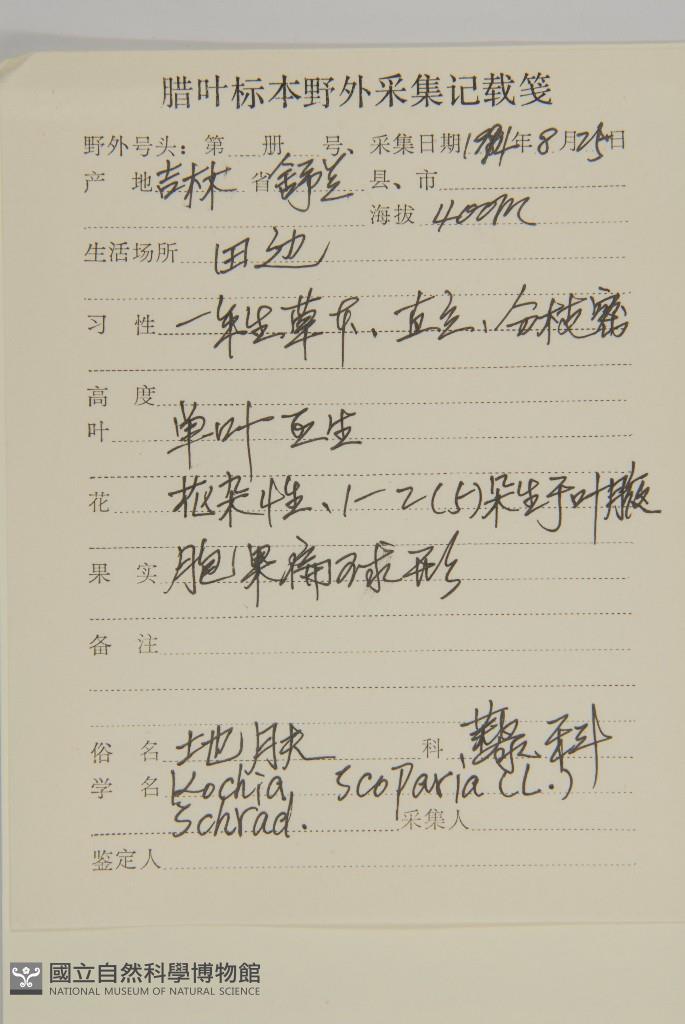 腊叶标本野外采集记载笺
野外号头: 第 册 号、采集日期 年 8 月 25 日
产 地 吉林 省 舒兰 县、市
海拔 400m
生活场所 田边
习 性 一年生草本、直立、分枝密
高 度
叶 单叶互生
花 花杂性、1-2(5)朵生于叶腋
果 实 胞果扁球形
备 注
俗 名 地肤 科 藜科
学 名 Kochia Scoparia (L.)
Schrad. 采集人
鉴定人
國立自然科學博物館
NATIONAL MUSEUM OF NATURAL SCIENCE